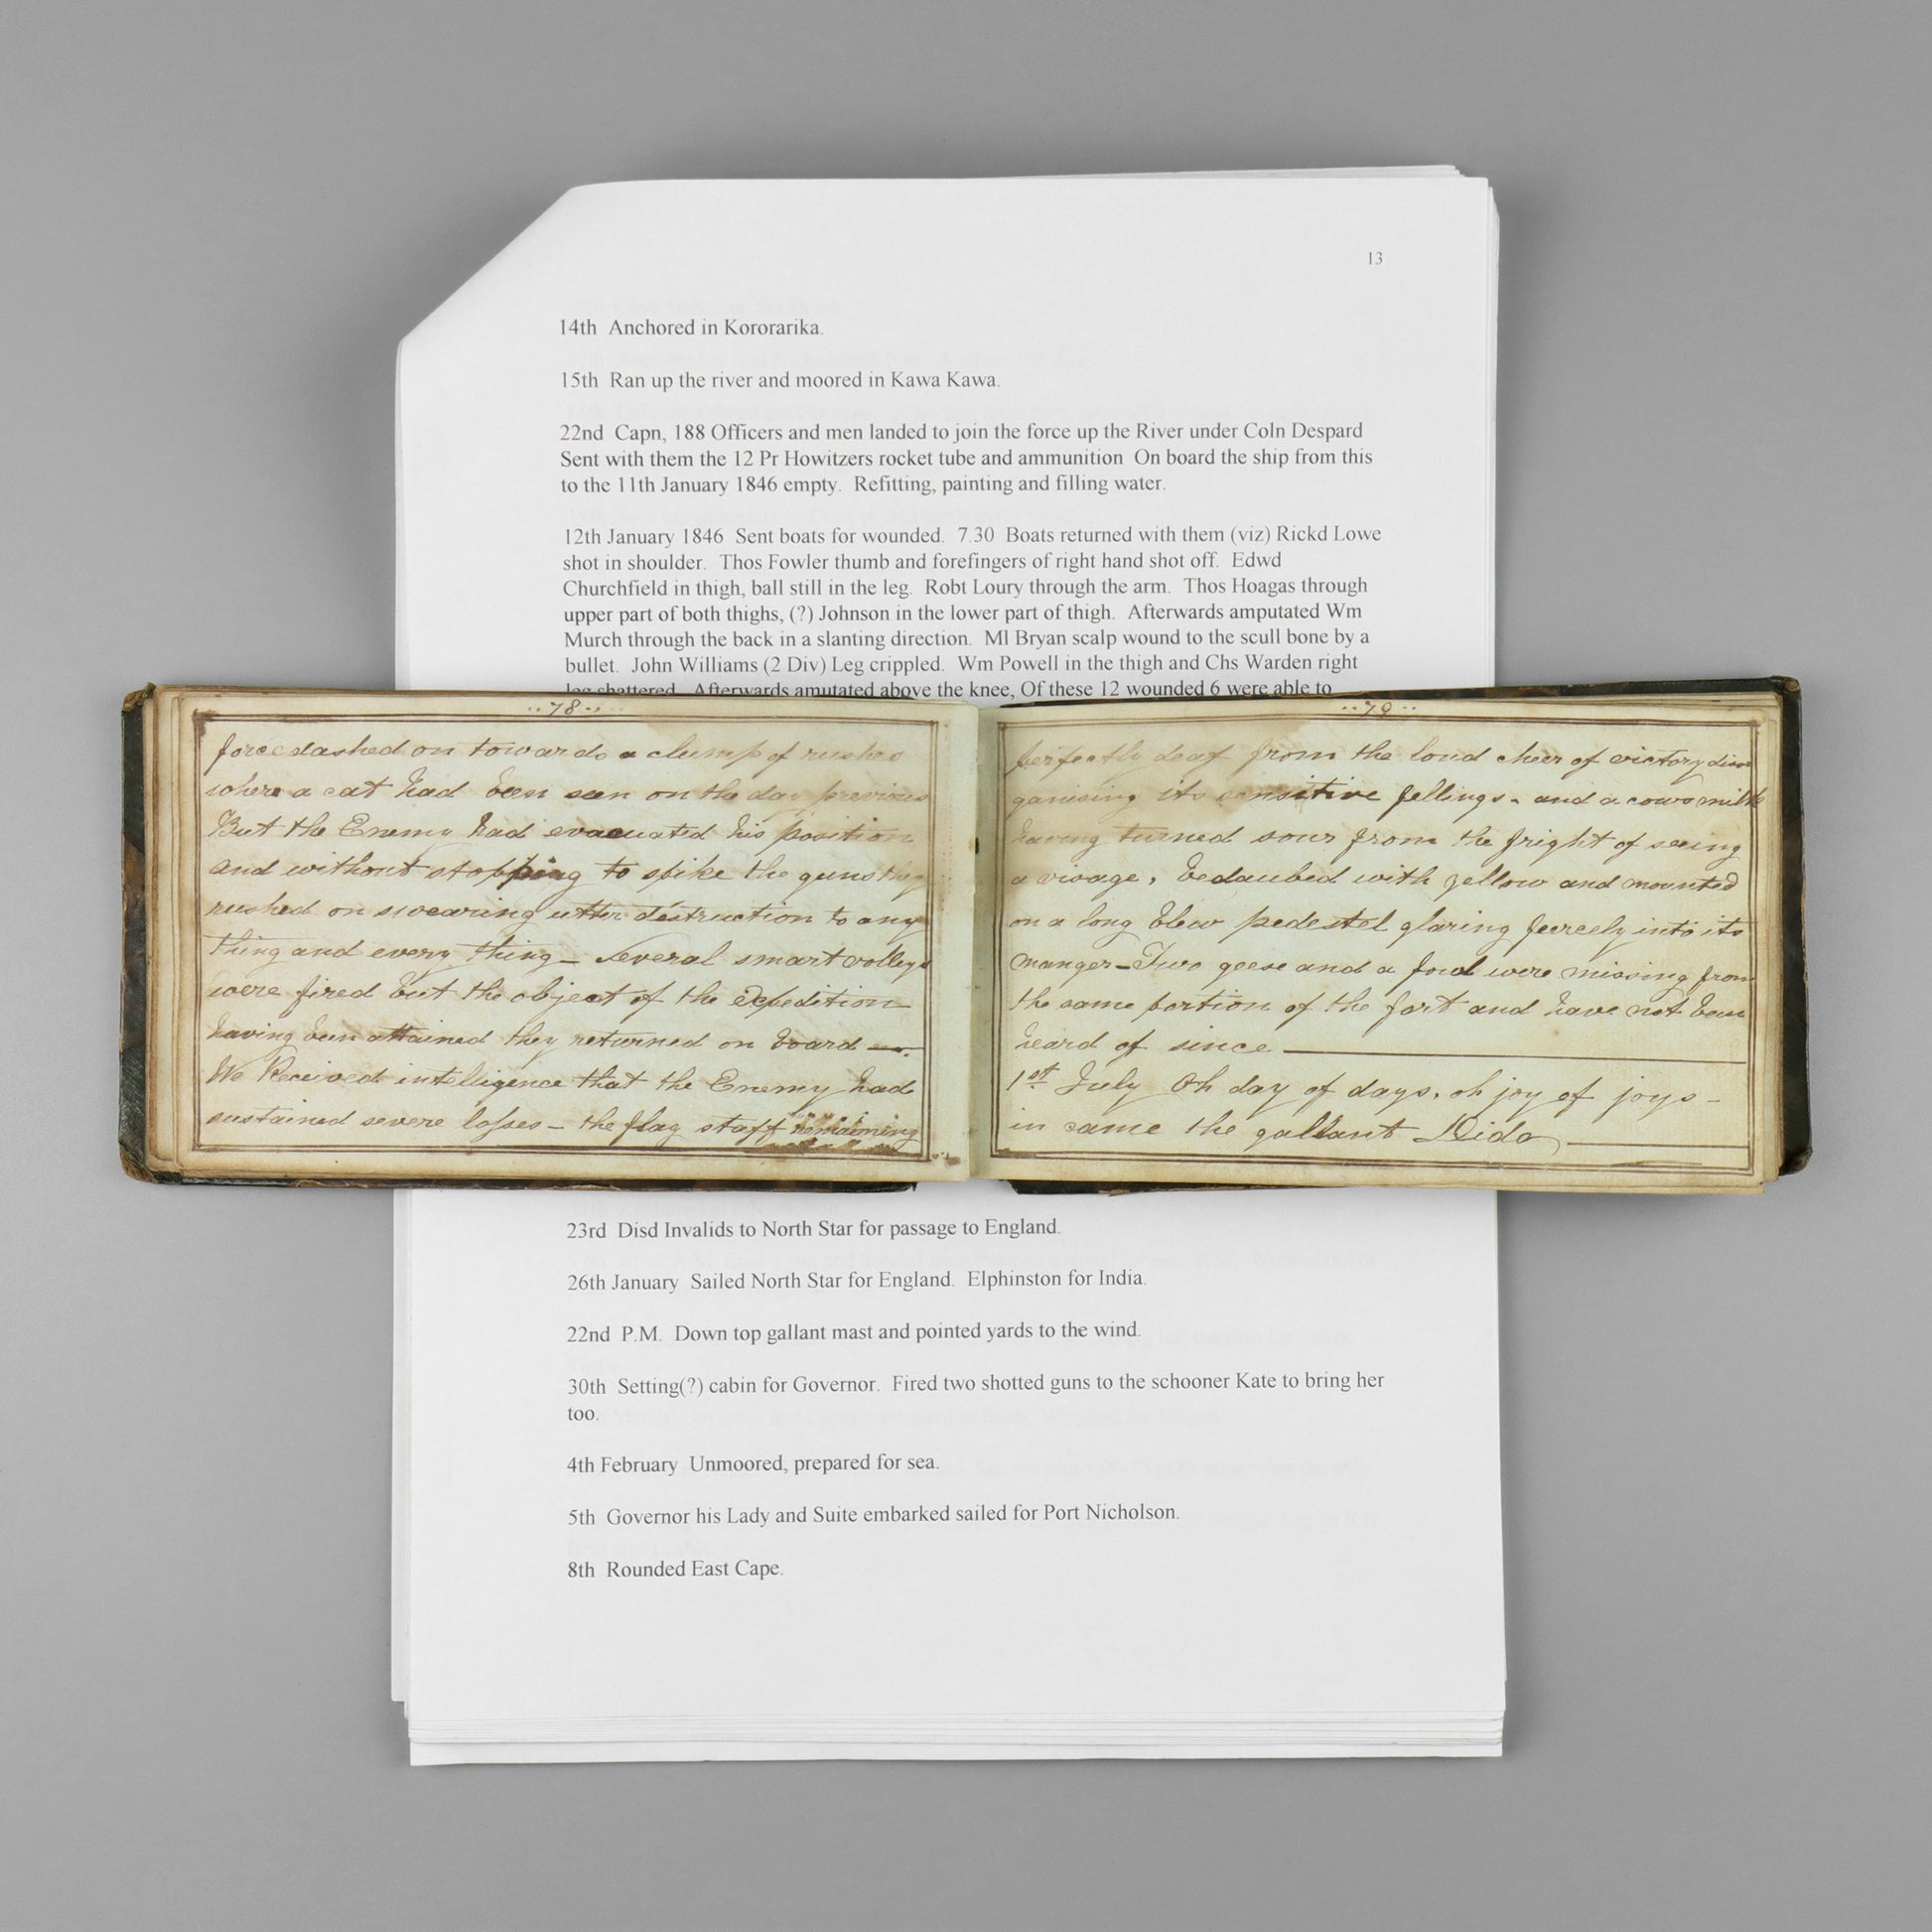 13
14th Anchored in Kororarika.
15th Ran up the river and moored in Kawa Kawa.
22nd Capn, 188 Officers and men landed to join the force up the River under Coln Despard
Sent with them the 12 Pr Howitzers rocket tube and ammunition On board the ship from this
to the 11th January 1846 empty. Refitting, painting and filling water.
12th January 1846 Sent boats for wounded. 7.30 Boats returned with them (viz) Rickd Lowe
shot in shoulder. Thos Fowler thumb and forefingers of right hand shot off. Edwd
Churchfield in thigh, ball still in the leg. Robt Loury through the arm. Thos Hoagas through
upper part of both thighs, (?) Johnson in the lower part of thigh. Afterwards amputated Wm
Murch through the back in a slanting direction. Ml Bryan scalp wound to the scull bone by a
bullet. John Williams (2 Div) Leg crippled. Wm Powell in the thigh and Chs Warden right
leg shattered. Afterwards amutated above the knee, Of these 12 wounded 6 were able to
..78..
force dashed on towards a clump of rushes
where a cat had been seen on the day previous
But the Enemy had evacuated his position
and without stopping to spike the guns they
rushed on swearing utter destruction to any
thing and every thing _ Several smart volleys
were fired but the object of the Expedition
having been attained they returned on board —.
We Received intelligence that the Enemy had
sustained severe losses – the flag staff remaining
..79..
perfectly deaf from the loud cheer of victory disor
ganising its sensitive fellings. and a cows milk
having turned sour from the fright of seeing
a visage, bedaubed with yellow and mounted
on a long blew pedestel glaring feercely into its
manger – Two geese and a fowl were missing from
the same portion of the fort and have not been
heard of since
1st July Oh day of days, oh joy of joys –
in came the gallant Dido
23rd Disd Invalids to North Star for passage to England.
26th January Sailed North Star for England. Elphinston for India.
22nd P.M. Down top gallant mast and pointed yards to the wind.
30th Setting(?) cabin for Governor. Fired two shotted guns to the schooner Kate to bring her
too.
4th February Unmoored, prepared for sea.
5th Governor his Lady and Suite embarked sailed for Port Nicholson.
8th Rounded East Cape.